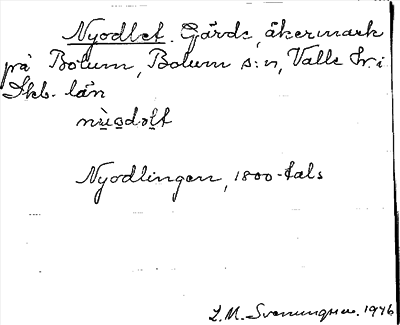 Nyodlet. Gärde, åkermark
på Bolum, Bolum s:n, Valle hr. i
Skb. län
Nyodlingen, 1800-tals
L.M. Svenungsson. 1946